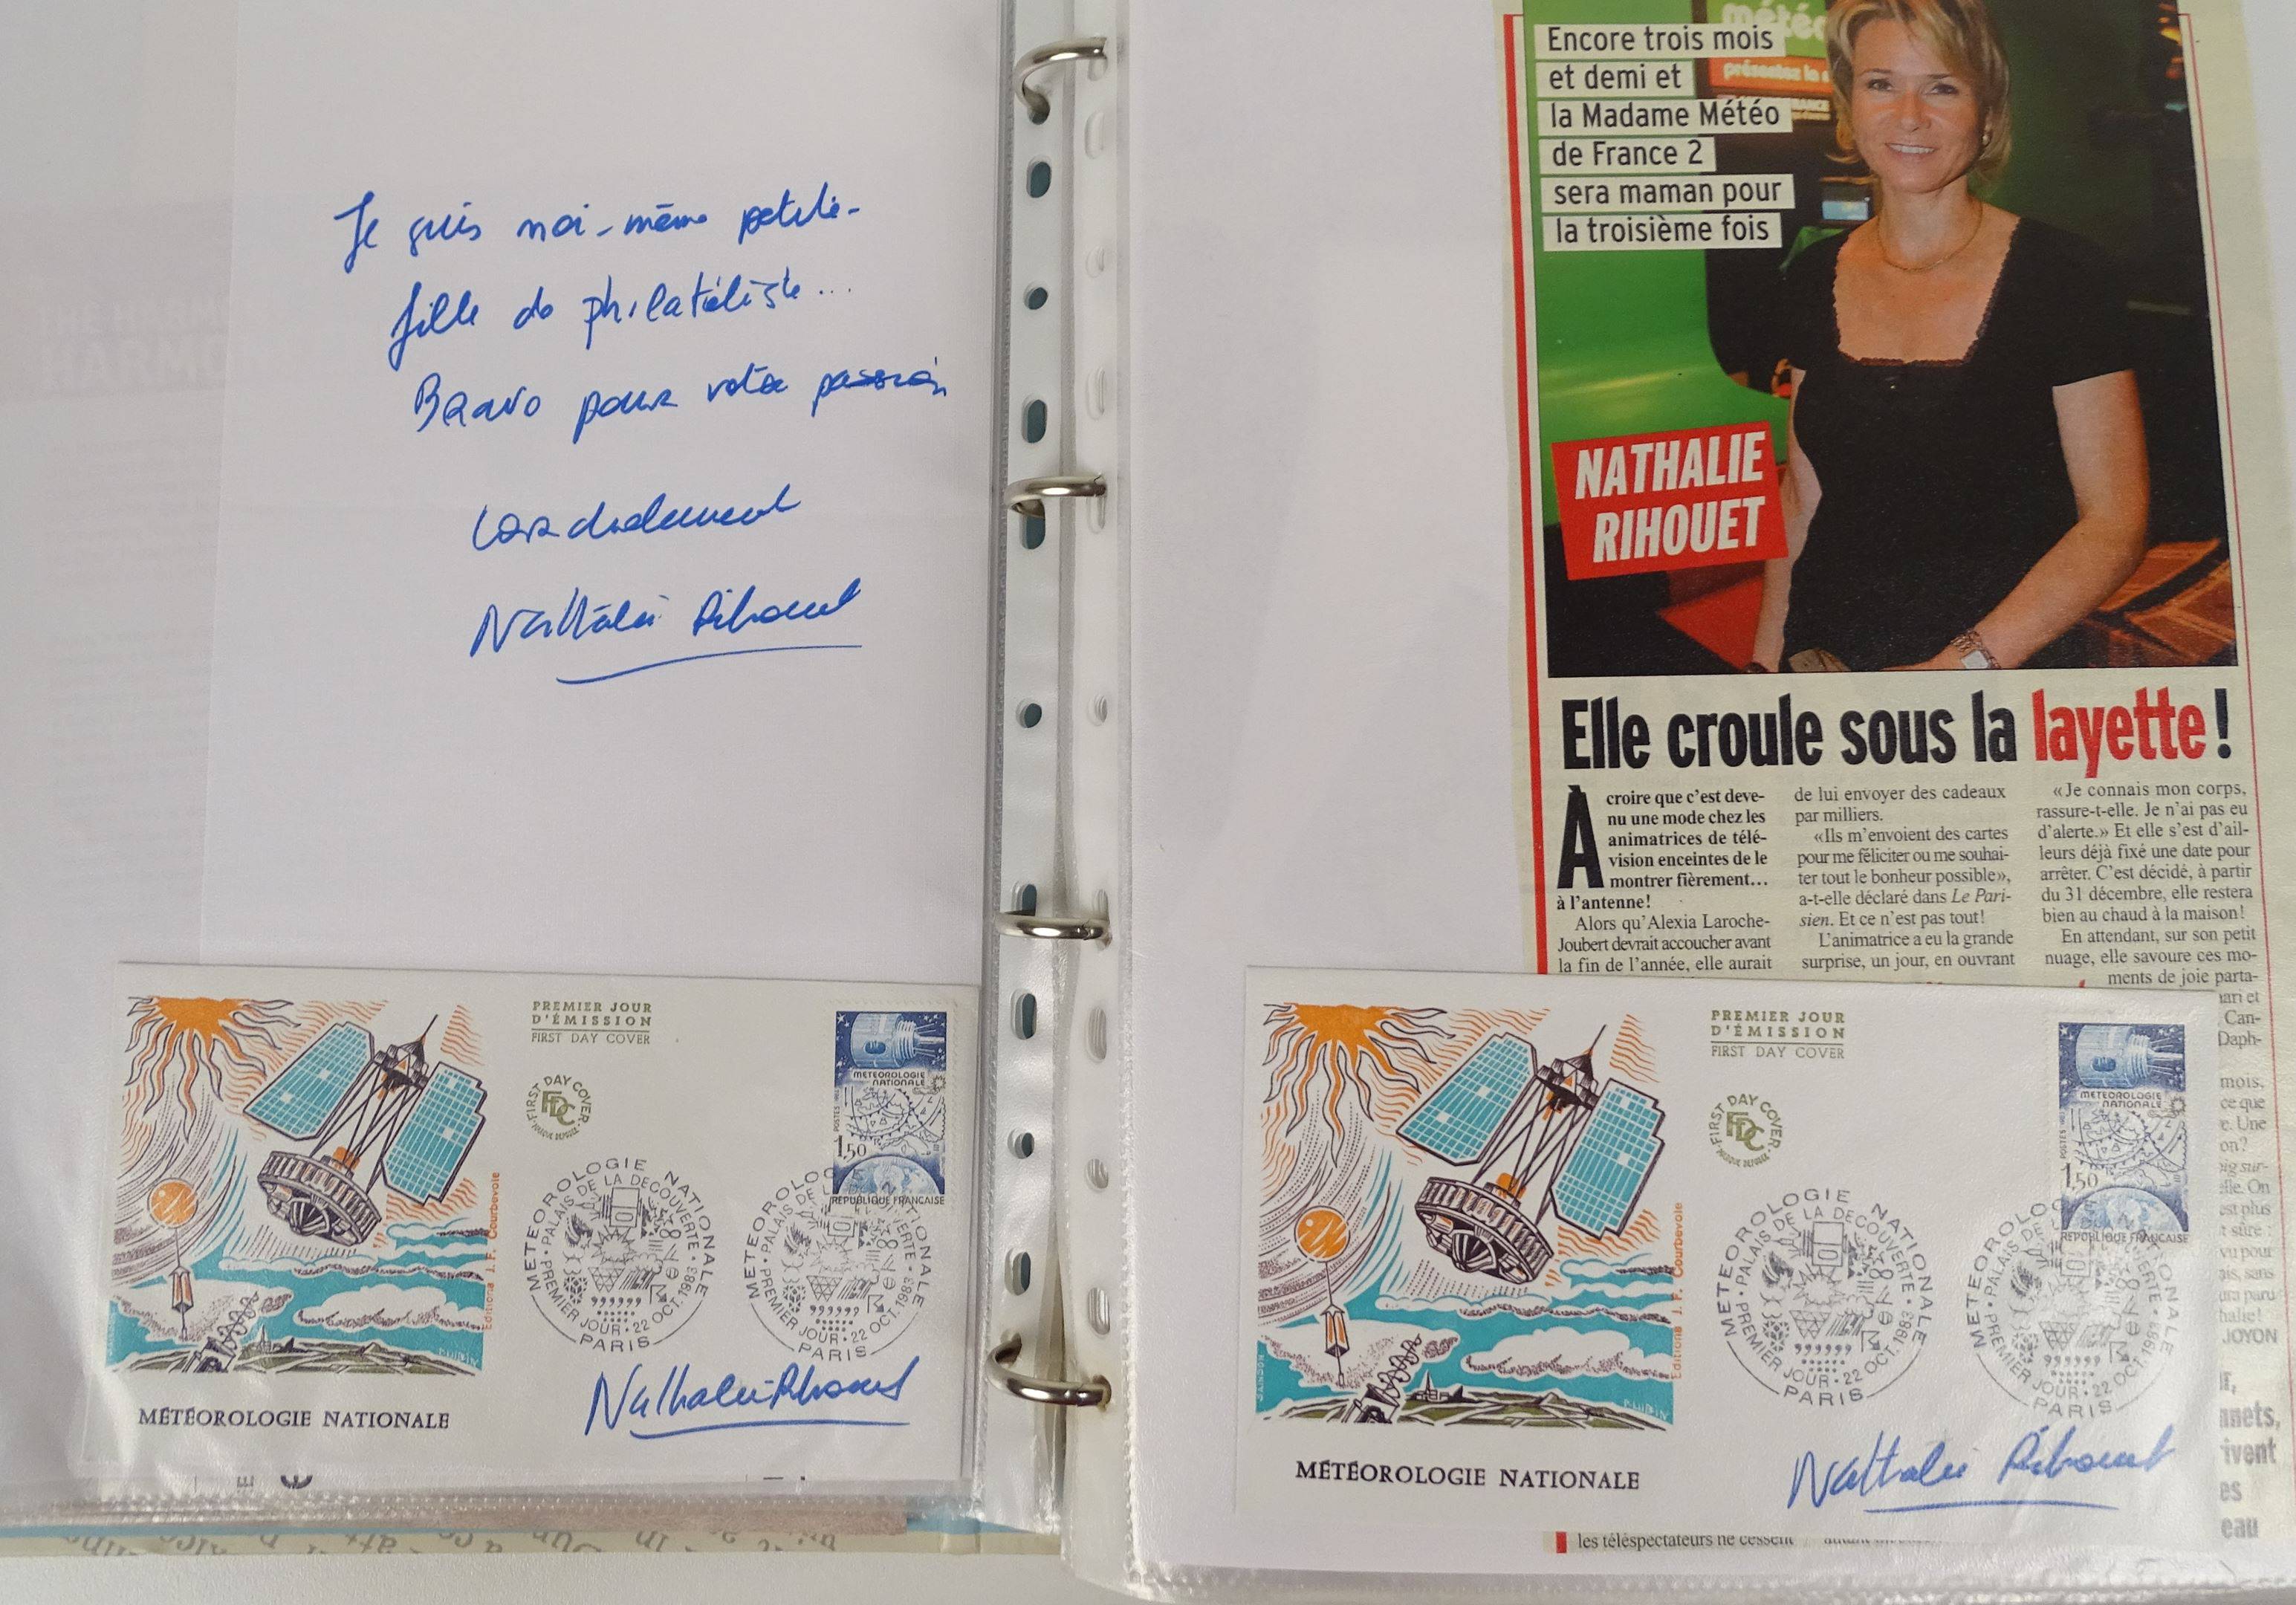 Je suis moi-même petite-
fille de philatéliste...
Bravo pour votre passion
Cordialement
Nathalie Rihouet
PREMIER JOUR
D'ÉMISSION
FIRST DAY COVER
FIRST DAY COVER
FDC
MARQUE DEPOSEE
METEOROLOGIE
NATIONALE
POSTES 1983
1,50
REPUBLIQUE FRANÇAISE
METEOROLOGIE NATIONALE
PALAIS DE LA DECOUVERTE
PREMIER JOUR • 22 OCT. 1983
PARIS
METEOROLOGIE NATIONALE
PALAIS DE LA DECOUVERTE
PREMIER JOUR • 22 OCT. 1983
PARIS
Editions J.F. Courbevoie
MÉTÉOROLOGIE NATIONALE
Nathalie Rihouet
météo
présentez la
Encore trois mois
et demi et
la Madame Météo
de France 2
sera maman pour
la troisième fois
NATHALIE
RIHOUET
Elle croule sous la layette !
À croire que c'est deve-
nu une mode chez les
animatrices de télé-
vision enceintes de le
montrer fièrement...
à l'antenne!
Alors qu'Alexia Laroche-
Joubert devrait accoucher avant
la fin de l'année, elle aurait
de lui envoyer des cadeaux
par milliers.
«Ils m'envoient des cartes
pour me féliciter ou me souhai-
ter tout le bonheur possible»,
a-t-elle déclaré dans Le Pari-
sien. Et ce n'est pas tout!
L'animatrice a eu la grande
surprise, un jour, en ouvrant
«Je connais mon corps,
rassure-t-elle. Je n'ai pas eu
d'alerte.» Et elle s'est d'ail-
leurs déjà fixé une date pour
arrêter. C'est décidé, à partir
du 31 décembre, elle restera
bien au chaud à la maison!
En attendant, sur son petit
nuage, elle savoure ces mo-
ments de joie parta-
ari et
Can-
Daph-
mois,
ce que
e. Une
on?
ig sur-
elle. On
est plus
t sûre :
vu pour
ais, sans
ura paru
halie!
JOYON
anets,
ivent
es
eau
PREMIER JOUR
D'ÉMISSION
FIRST DAY COVER
FIRST DAY COVER
FDC
MARQUE DEPOSEE
METEOROLOGIE
NATIONALE
POSTES 1983
1,50
REPUBLIQUE FRANÇAISE
METEOROLOGIE NATIONALE
PALAIS DE LA DECOUVERTE
PREMIER JOUR • 22 OCT. 1983
PARIS
METEOROLOGIE NATIONALE
PALAIS DE LA DECOUVERTE
PREMIER JOUR • 22 OCT. 1983
PARIS
Editions J.F. Courbevoie
MÉTÉOROLOGIE NATIONALE
Nathalie Rihouet
les téléspectateurs ne cessent